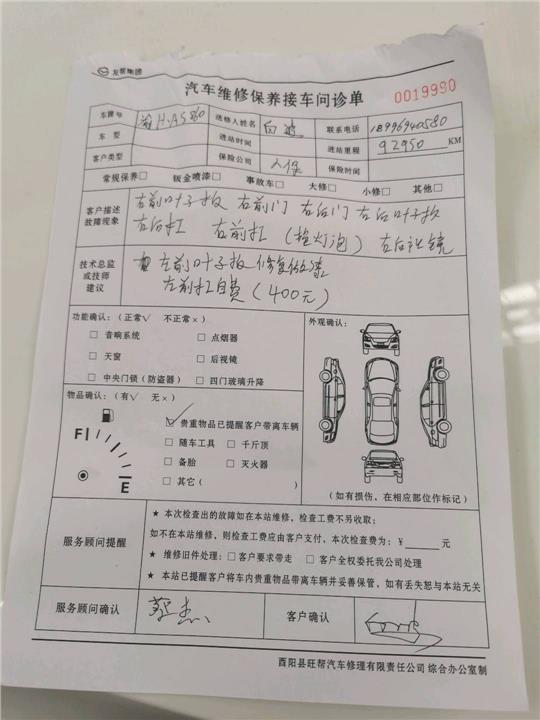 友帮集团
汽车维修保养接车问诊单
0019990
车牌号 渝H·A580 送修人姓名 向 联系电话 18996940580
车型 进站时间 进站里程 92950 KM
客户类型 保险公司 人保 保险时间
常规保养□ 钣金喷漆□ 事故车□ 大修□ 小修□ 其他□
客户描述故障现象 右前叶子板 右前门 右后门 右后叶子板
右后杠 右前杠（抢灯泡）右后视镜
技术总监或技师建议 左前叶子板修复做漆
左前杠自费（400元）
功能确认：（正常√ 不正常×） 外观确认：
□ 音响系统 □ 点烟器
□ 天窗 □ 后视镜
□ 中央门锁（防盗器） □ 四门玻璃升降
物品确认：（有√ 无×）
□ 贵重物品已提醒客户带离车辆
□ 随车工具 □ 千斤顶
□ 备胎 □ 灭火器
□ 其它（ ）
F
E
（如有损伤，在相应部位作标记）
服务顾问提醒
★ 本次检查出的故障如在本站维修，检查工费不另收取；
如不在本站维修，则检查工费应由客户支付，本次检查费为：¥ 元
★ 维修旧件处理：□ 客户要求带走 □ 客户全权委托我公司处理
★ 本站已提醒客户将车内贵重物品带离车辆并妥善保管，如有丢失恕与本站无关
服务顾问确认 客户确认
酉阳县旺帮汽车修理有限责任公司 综合办公室制